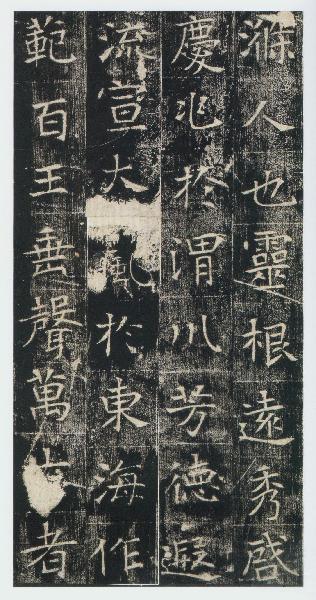 滁人也靈根遠秀啓
慶兆於渭川芳德遐
流宣大風於東海作
範百王垂聲萬古者